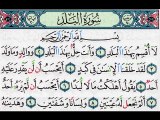 سورة البلد
بسم الله الرحمن الرحيم
لا أقسم بهذا البلد ۝ وأنت حل بهذا البلد ۝ ووالد وما ولد ۝
لقد خلقنا الإنسن في كبد ۝ أيحسب أن لن يقدر عليه
أحد ۝ يقول أهلكت مالا لبدا ۝ أيحسب أن لم يره أحد ۝
ألم نجعل له عينين ۝ ولسانا وشفتين ۝ وهدينه